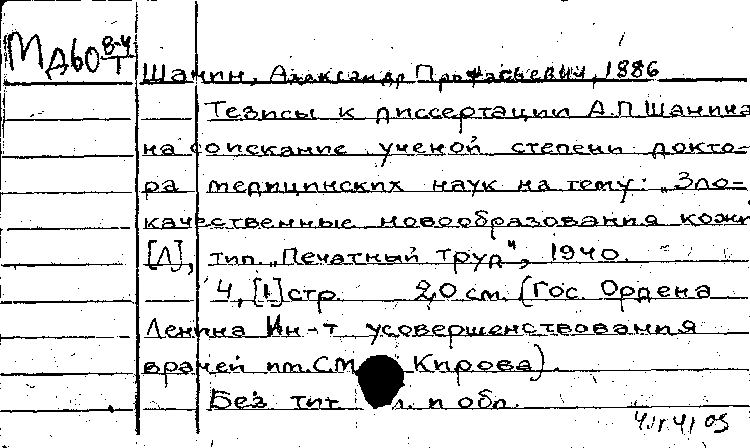 МД60 8-4/1
Шанин, Александр Протасьевич, 1886
Тезисы к диссертации А.П. Шанина
на соискание ученой степени докто-
ра медицинских наук на тему: „Зло-
качественные новообразования кожи
[Л], тип. „Печатный труд", 1940.
4, [1] стр. 20 см. (Гос. Ордена
Ленина Ин-т усовершенствования
врачей им. С.М. Кирова).
Без тит. л. и обл.